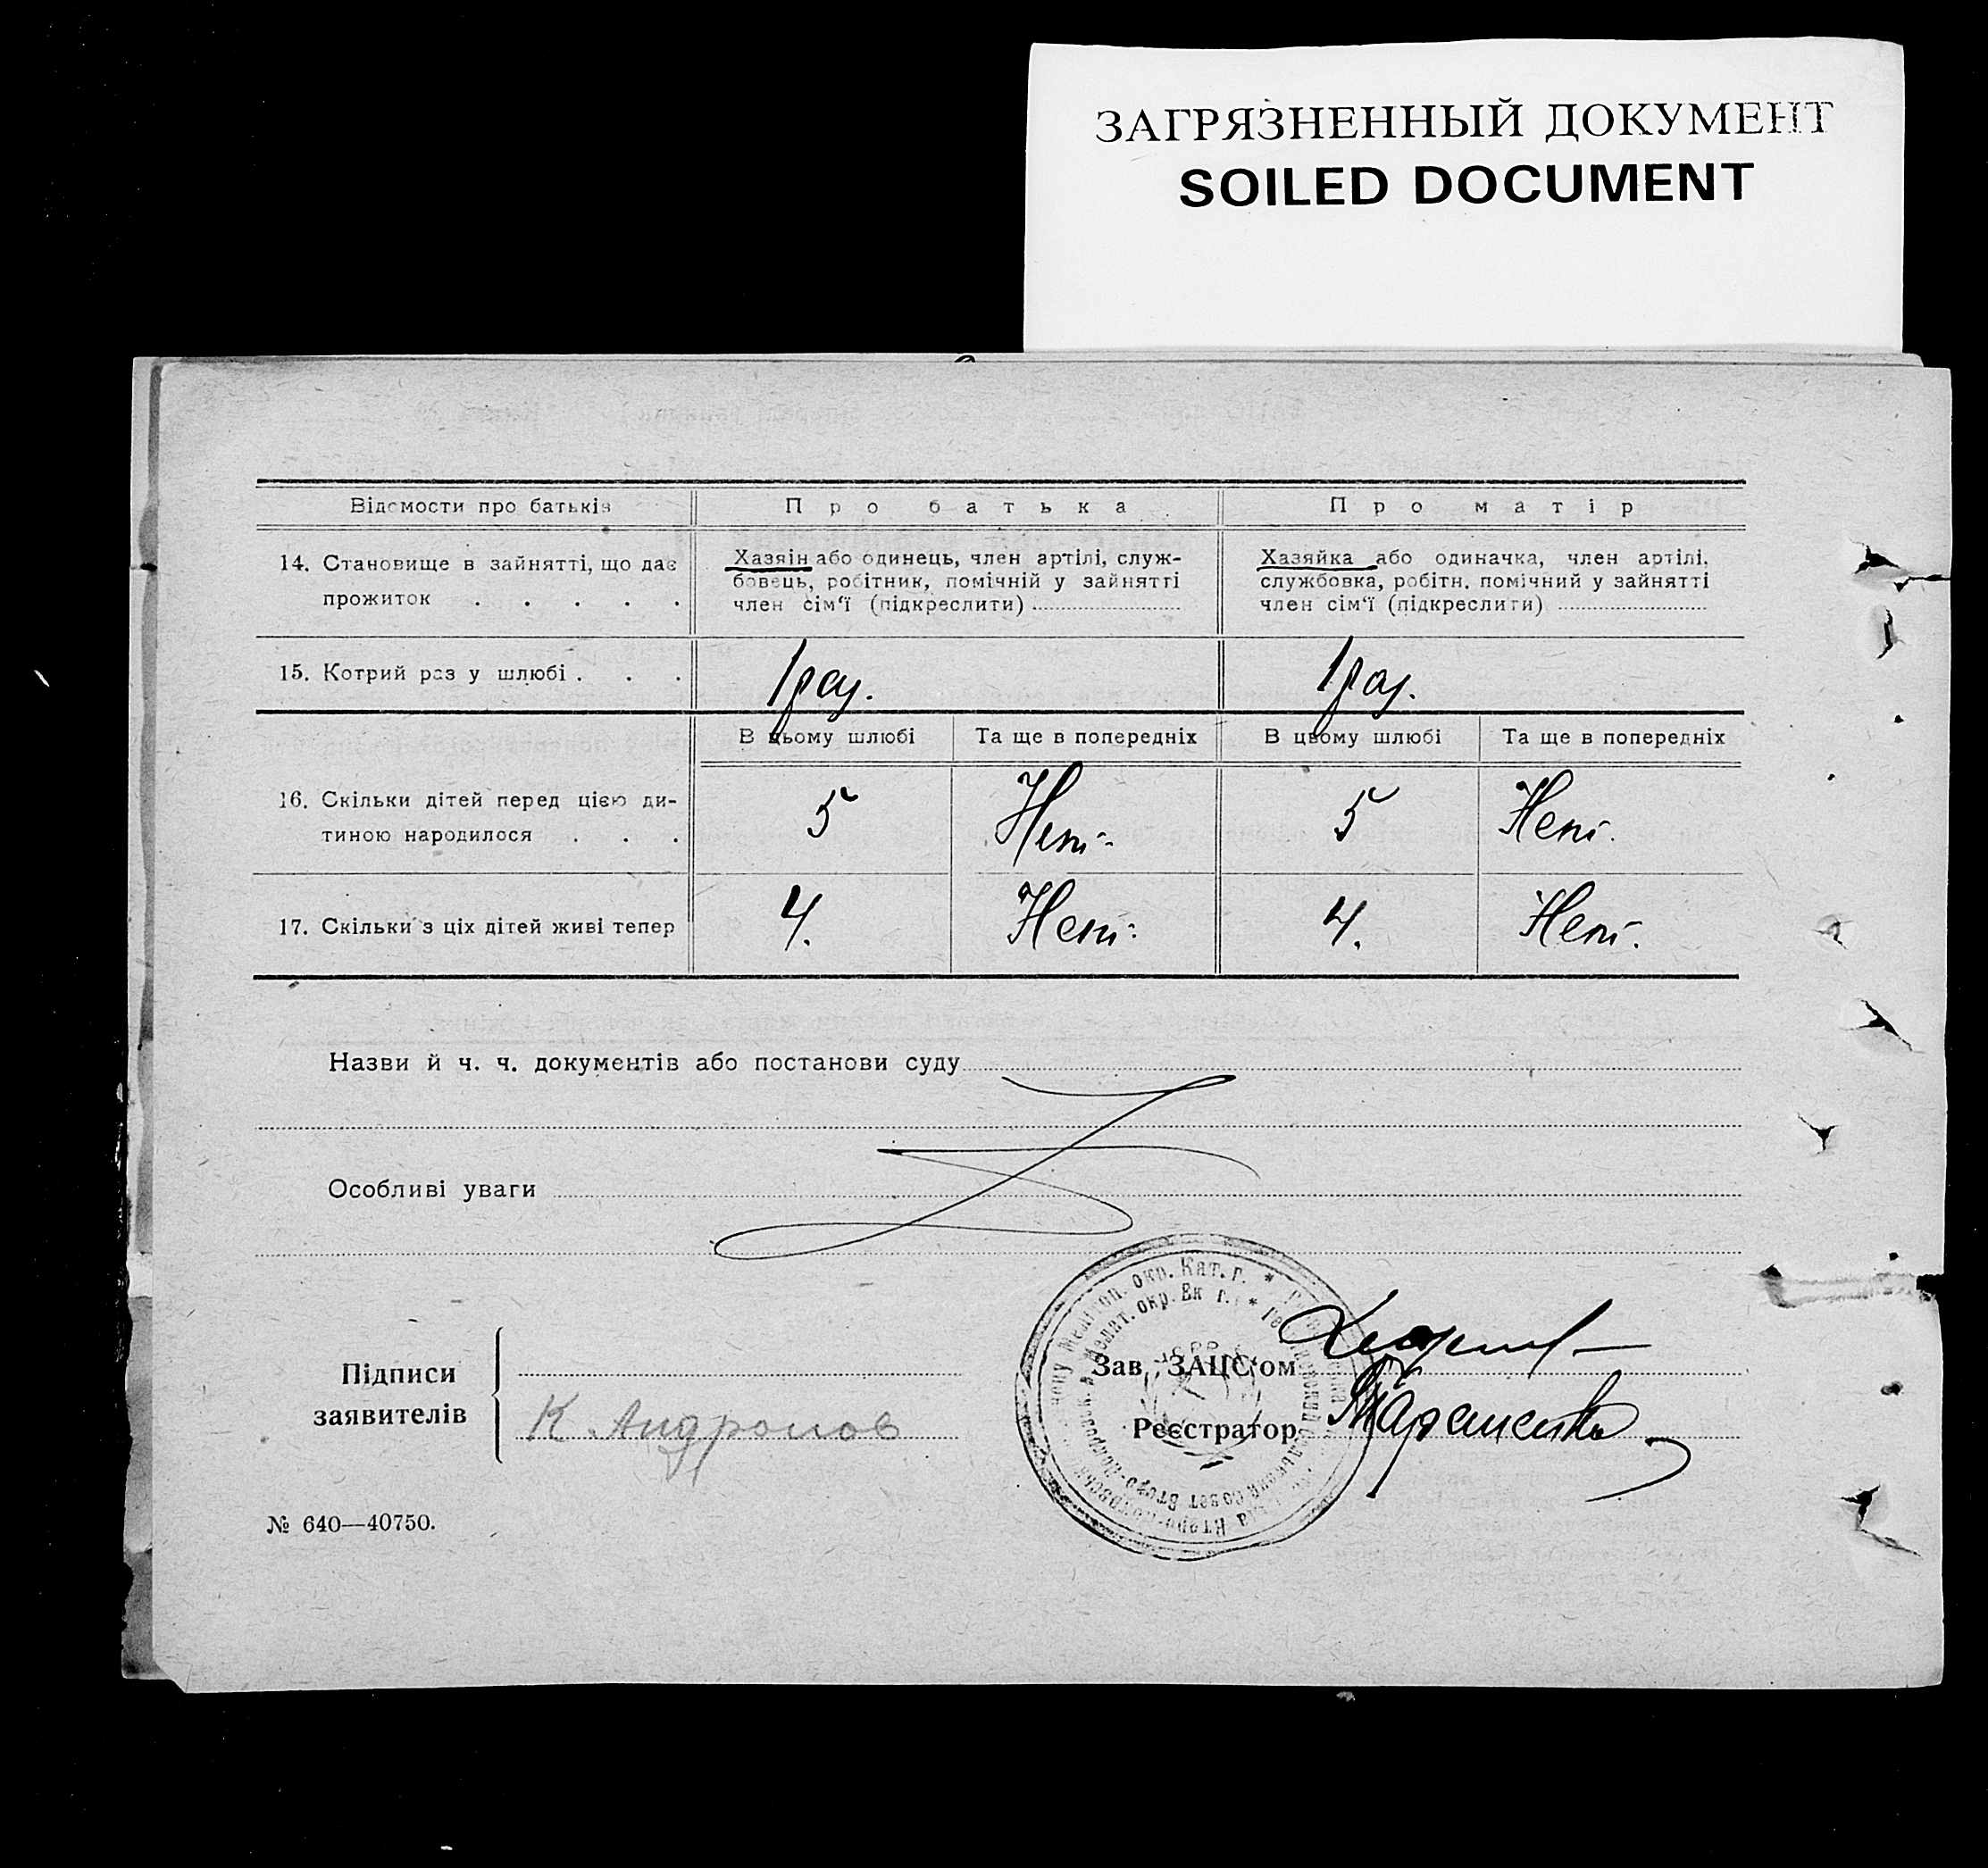 ЗАГРЯЗНЕННЫЙ ДОКУМЕНТ
SOILED DOCUMENT
Відомости про батьків
Про батька
Про матір
14. Становище в зайнятті, що дає
прожиток . . . . .
Хазяін або одинець, член артілі, служ-
бовець, робітник, помічній у зайнятті
член сім'ї (підкреслити)
Хазяйка або одиначка, член артілі,
службовка, робітн. помічний у зайнятті
член сім'ї (підкреслити)
15. Котрий раз у шлюбі . . .
1 раз.
1 раз.
В цьому шлюбі
Та ще в попередніх
В цьому шлюбі
Та ще в попередніх
16. Скільки дітей перед цією ди-
тиною народилося . . .
5
Нет
5
Нет.
17. Скільки з ціх дітей живі тепер
4.
Нет
4.
Нет.
Назви й ч. ч. документів або постанови суду
Особливі уваги
Підписи
заявителів
К Андронов
Зав. ЗАЦС'ом
Реєстратор
окр. Кат. г. *
Мелит. окр. Ек г. *
№ 640—40750.